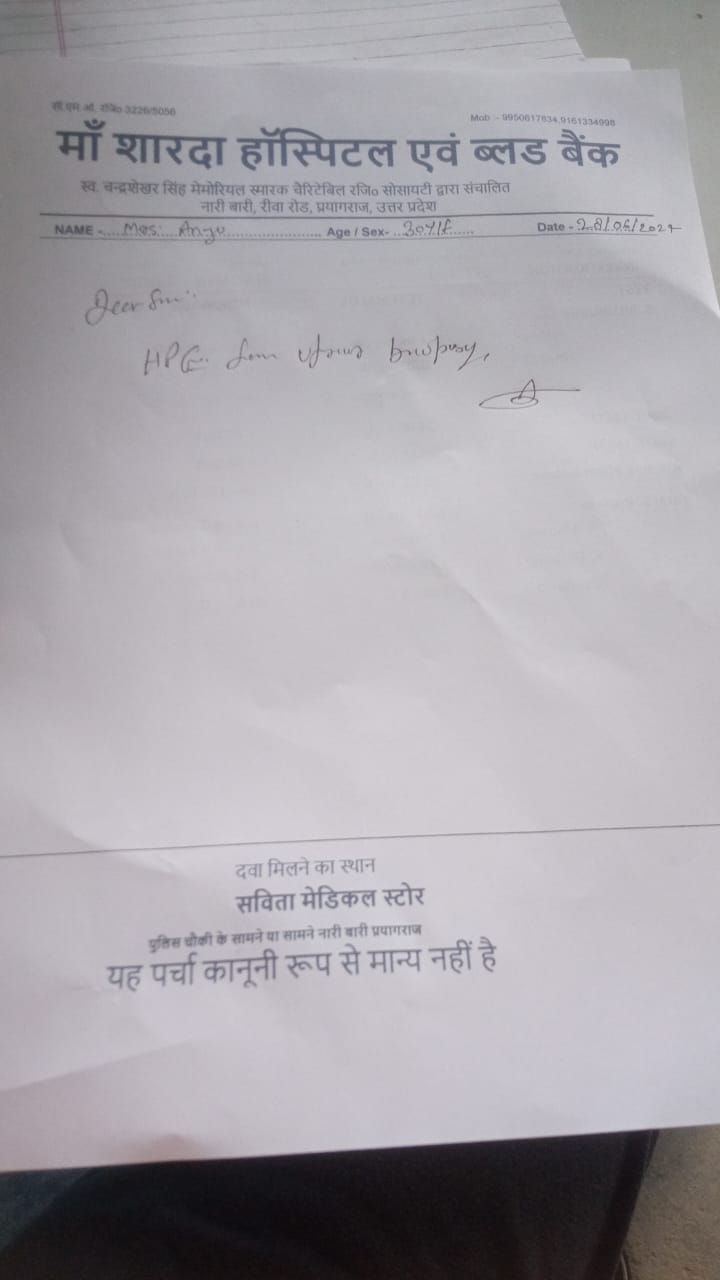 सी.एम.ओ. रजि० 3226/5056
Mob :- 9950617634,9161334998
माँ शारदा हॉस्पिटल एवं ब्लड बैंक
स्व. चन्द्रशेखर सिंह मेमोरियल स्मारक चैरिटेबिल रजि० सोसायटी द्वारा संचालित
नारी बारी, रीवा रोड, प्रयागराज, उत्तर प्रदेश
NAME -.... Mos: Anju .................... Age / Sex- ..30Y/f...... Date -
Dear Sir:
HPE.
दवा मिलने का स्थान
सविता मेडिकल स्टोर
पुलिस चौकी के सामने या सामने नारी बारी प्रयागराज
यह पर्चा कानूनी रूप से मान्य नहीं है